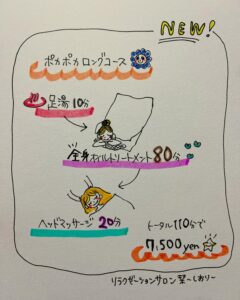 NEW!
ポカポカロングコース
足湯10分
全身オイルトリートメント80分
ヘッドマッサージ20分
トータル110分で
7,500yen
リラクゼーションサロン 栞〜しおり〜